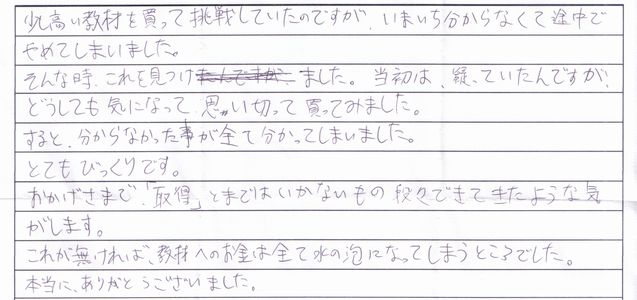 少し高い教材を買って挑戦していたのですが、いまいち分からなくて途中で
やめてしまいました。
そんな時、これを見つけました。当初は、疑っていたんですが、
どうしても気になって、思い切って買ってみました。
すると、分からなかった事が全て分かってしまいました。
とてもびっくりです。
おかげさまで、「取得」とまではいかないもの段々できてきたような気
がします。
これが無ければ、教材へのお金は全て水の泡になってしまうところでした。
本当に、ありがとうございました。